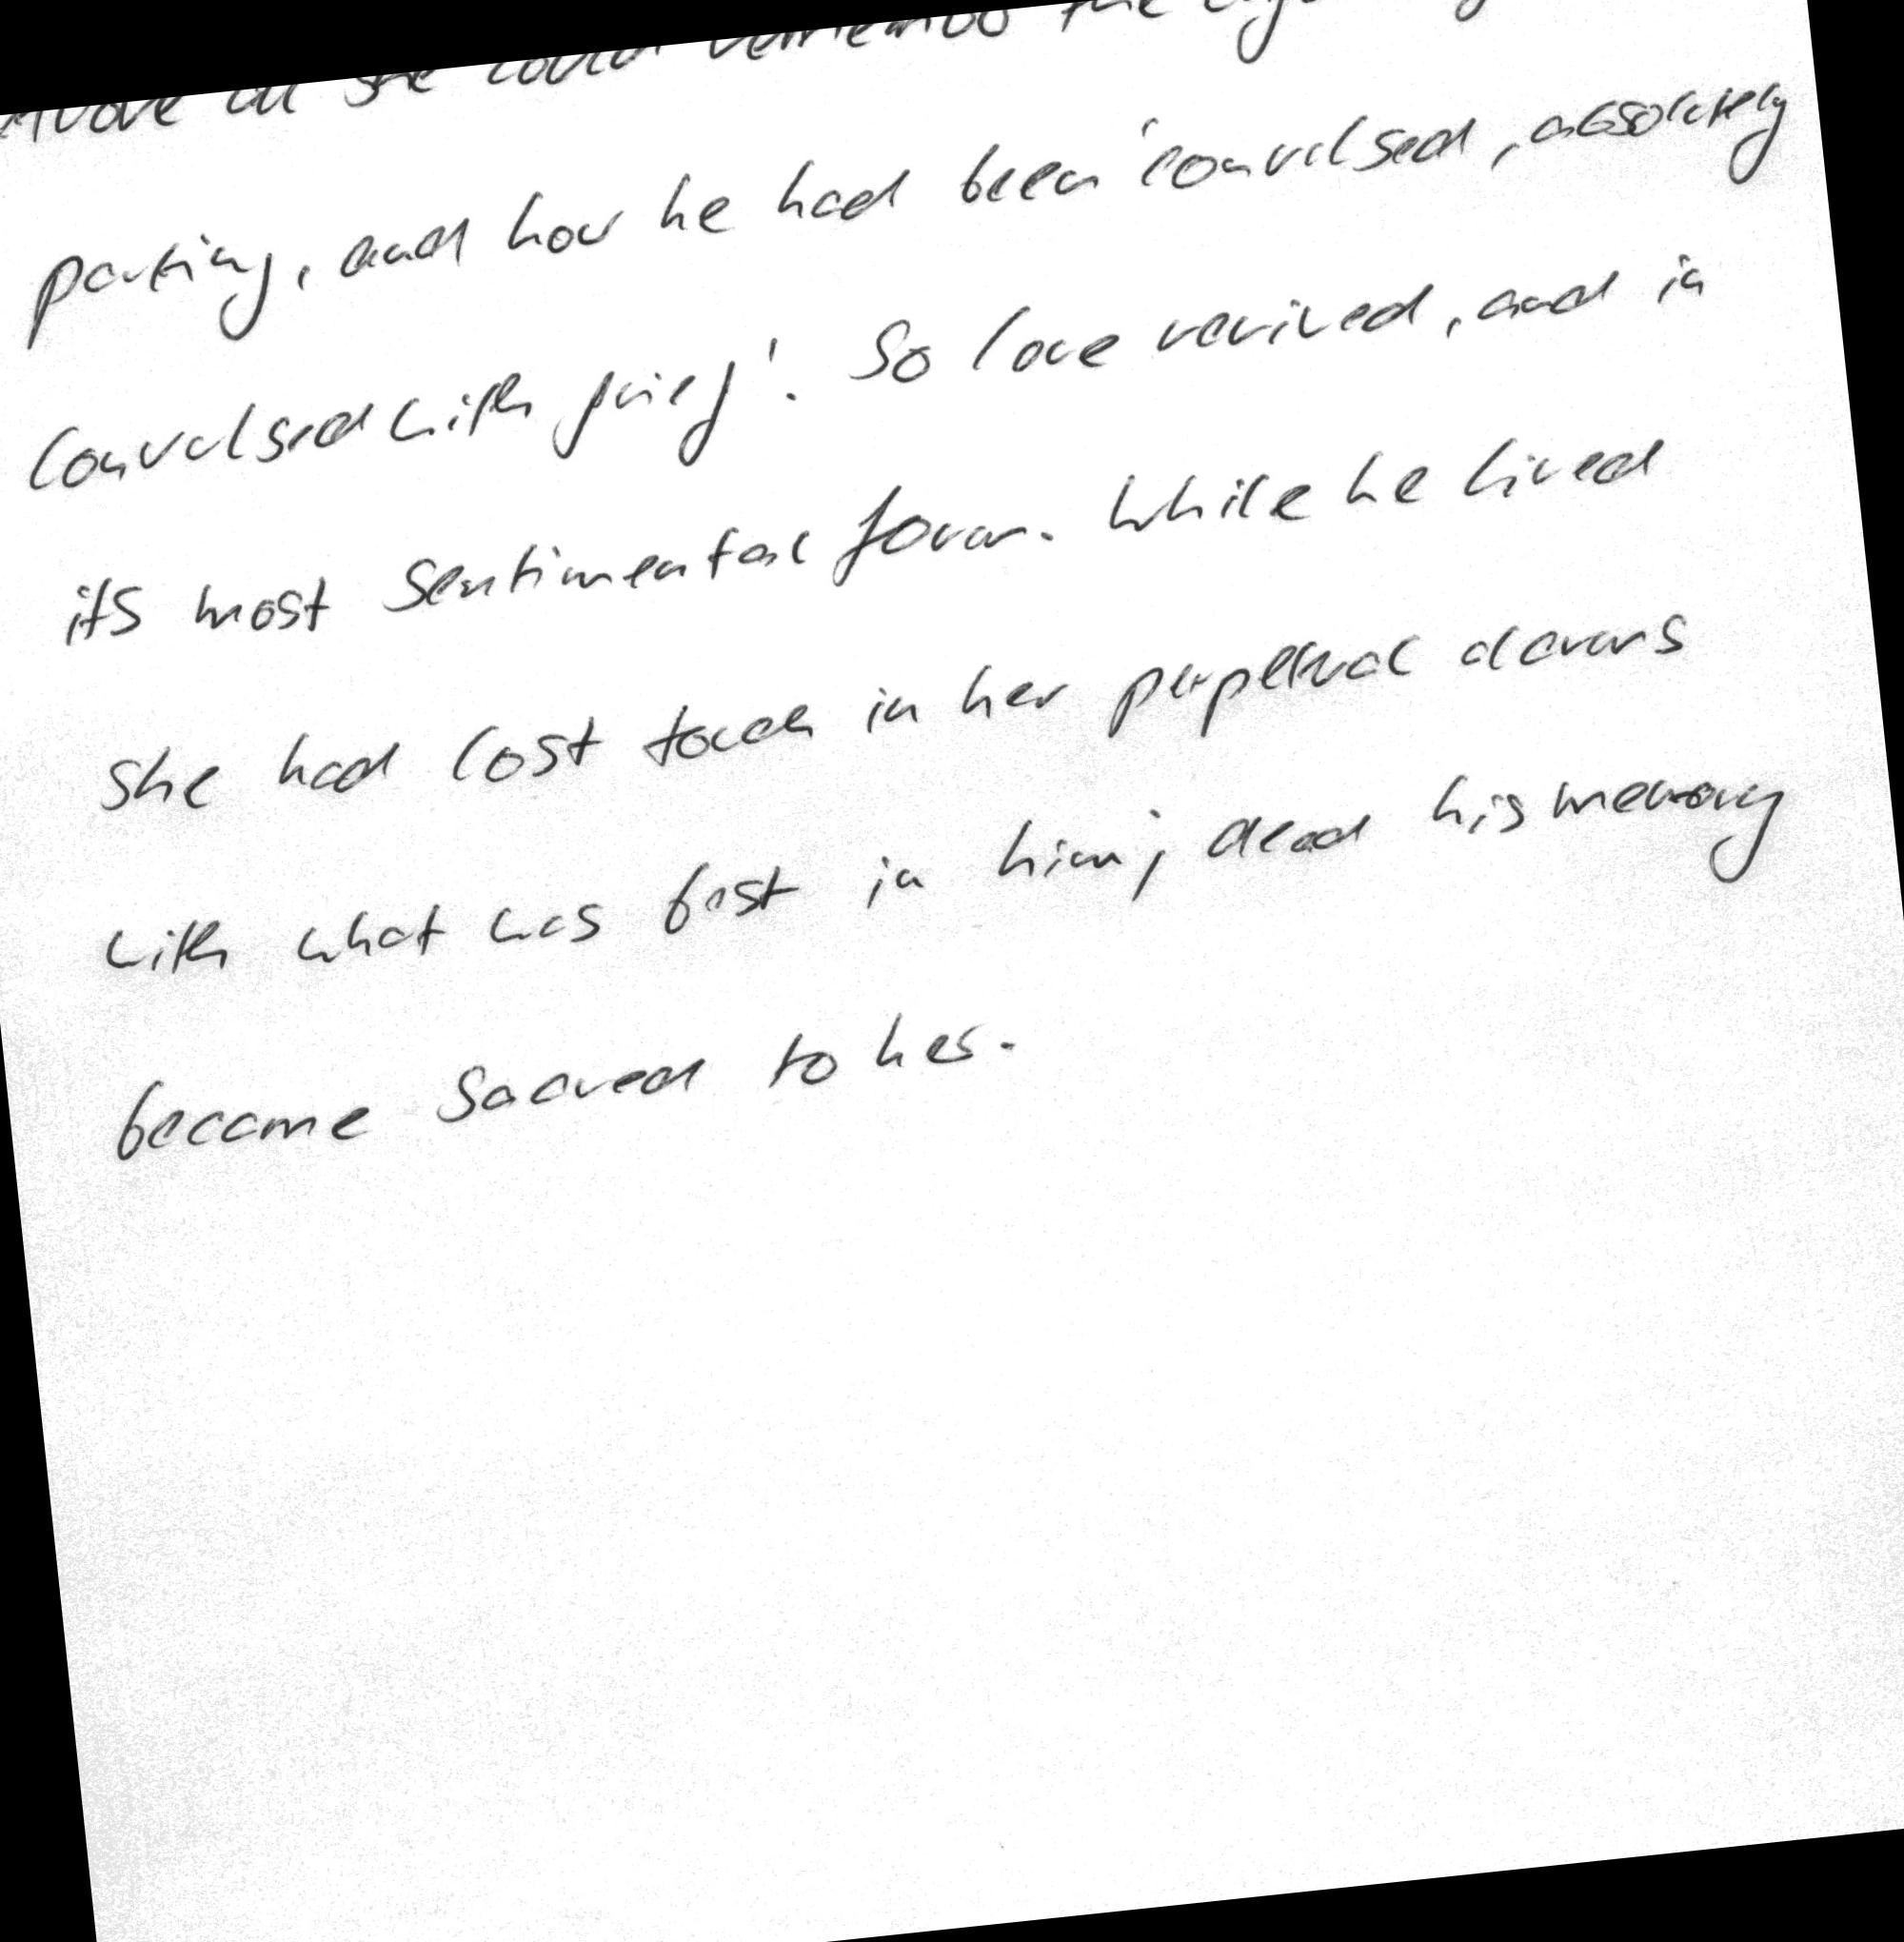 Above all she could remember the
parting, and how he had been 'convulsed, absolutely
convulsed with grief'. So love revived, and in
its most sentimental form. While he lived
she had lost touch in her perpetual alarms
with what was best in him; dead his memory
became sacred to her.